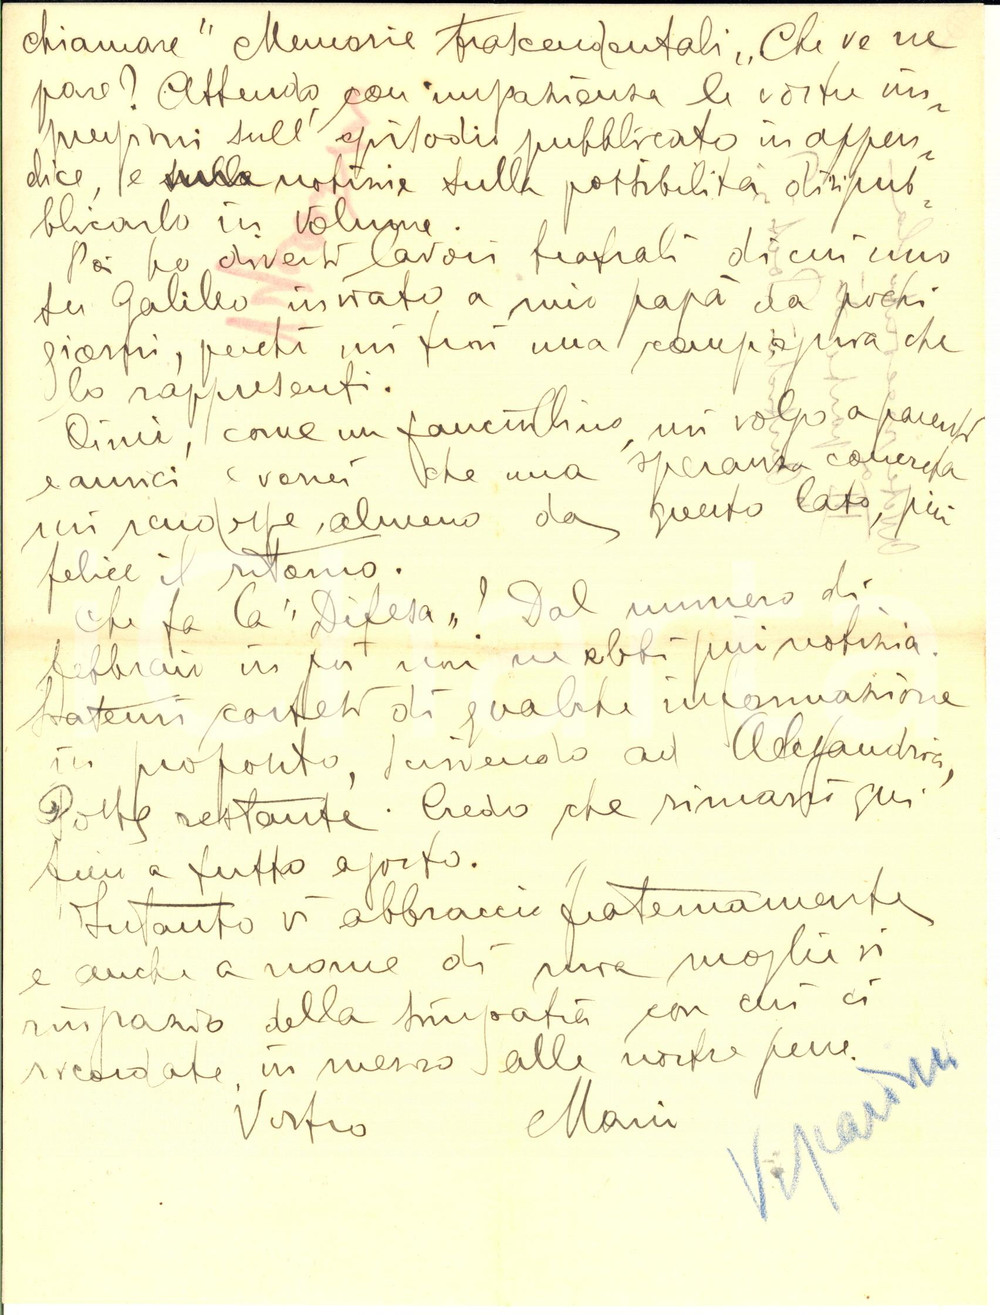 chiamare "Memorie trascendentali". Che ve ne
pare? Attendo con impazienza le vostre im-
pressioni sull'episodio pubblicato in appen-
dice, e sulla notizie sulla possibilità di ripub-
blicarlo in volume.
Poi ho diversi lavori teatrali di cui uno
su Galileo inviato a mio papà da pochi
giorni, perché mi trovi una compagnia che
lo rappresenti.
Quindi, come un fanciullino, mi volgo a parenti
e amici e vorrei che una speranza concreta
mi rendesse, almeno da questo lato, più
felice il ritorno.
Che fa la "Difesa"! Dal numero di
febbraio in poi non ne ebbi più notizia.
Siatemi cortesi di qualche informazione
in proposito, scrivendo ad Alessandria,
Poste restante. Credo che rimarrò qui
fino a tutto agosto.
Intanto vi abbraccio fraternamente
e anche a nome di mia moglie vi
ringrazio della simpatia con cui ci
ricordate, in mezzo alle nostre pene.
Vostro Mario